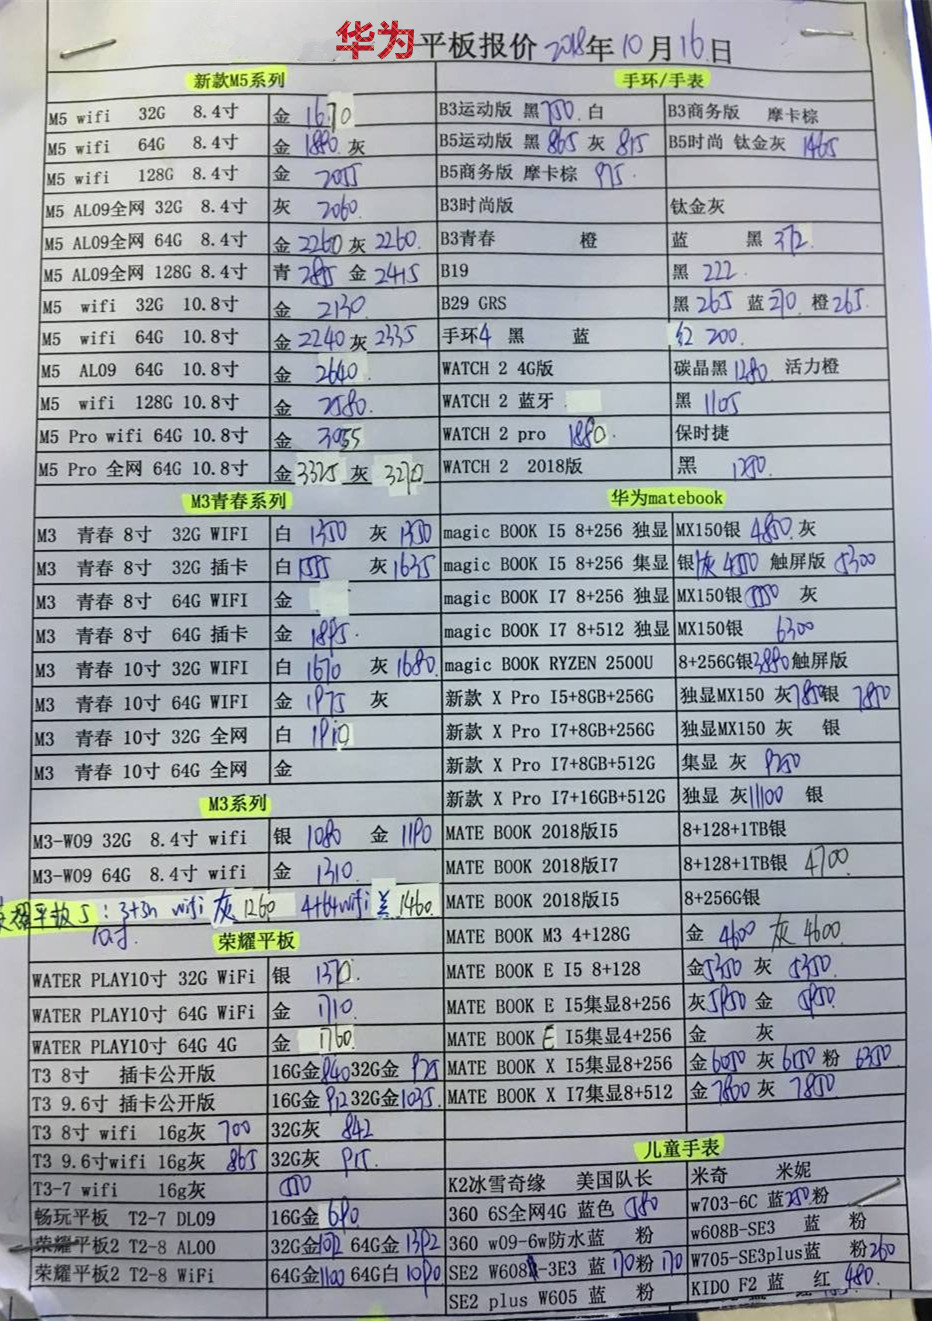 华为平板报价 2018年10月16日
新款M5系列
M5 wifi 32G 8.4寸 金 1670
M5 wifi 64G 8.4寸 金 1880. 灰
M5 wifi 128G 8.4寸 金 2055
M5 AL09全网 32G 8.4寸 灰 2060.
M5 AL09全网 64G 8.4寸 金 2260 灰 2260.
M5 AL09全网 128G 8.4寸 青 金 2415
M5 wifi 32G 10.8寸 金 2130.
M5 wifi 64G 10.8寸 金 2240 灰 2335
M5 AL09 64G 10.8寸 金 2640.
M5 wifi 128G 10.8寸 金 2580.
M5 Pro wifi 64G 10.8寸 金
M5 Pro 全网 64G 10.8寸 金 3325 灰 3270
M3青春系列
M3 青春 8寸 32G WIFI 白 1350 灰 1350
M3 青春 8寸 32G 插卡 白 1555 灰 1635
M3 青春 8寸 64G WIFI 金
M3 青春 8寸 64G 插卡 金 1895.
M3 青春 10寸 32G WIFI 白 1670 灰 1680.
M3 青春 10寸 64G WIFI 金 1975 灰
M3 青春 10寸 32G 全网 白 1910
M3 青春 10寸 64G 全网 金
M3系列
M3-W09 32G 8.4寸 wifi 银 1080 金 1190
M3-W09 64G 8.4寸 wifi 金 1310.
平板5：3+32 wifi 灰 1260 4+64wifi 1460.
10寸.
荣耀平板
WATER PLAY10寸 32G WiFi 银 1370.
WATER PLAY10寸 64G WiFi 金 1710
WATER PLAY10寸 64G 4G 金 1760.
T3 8寸 插卡公开版 16G金 840 32G金 925
T3 9.6寸 插卡公开版 16G金 912 32G金 1035.
T3 8寸 wifi 16g灰 700 32G灰 842
T3 9.6寸wifi 16g灰 865 32G灰 915.
T3-7 wifi 16g灰 550
畅玩平板 T2-7 DL09 16G金 690
荣耀平板2 T2-8 AL00 32G金 64G金 1392
荣耀平板2 T2-8 WiFi 64G金 1100 64G白 1090
手环/手表
B3运动版 黑 750. 白 B3商务版 摩卡棕
B5运动版 黑 865 灰 815 B5时尚 钛金灰 1465
B5商务版 摩卡棕 975.
B3时尚版 钛金灰
B3青春 橙 蓝 黑 372.
B19 黑 222.
B29 GRS 黑 265 蓝 270 橙 265.
手环4 黑 蓝 红 200.
WATCH 2 4G版 碳晶黑 1280. 活力橙
WATCH 2 蓝牙 黑 1105
WATCH 2 pro 1880. 保时捷
WATCH 2 2018版 黑 1250.
华为matebook
magic BOOK I5 8+256 独显 MX150银 4850. 灰
magic BOOK I5 8+256 集显 银灰 4550 触屏版 5300
magic BOOK I7 8+256 独显 MX150银 5550 灰
magic BOOK I7 8+512 独显 MX150银 6300
magic BOOK RYZEN 2500U 8+256G银 3880 触屏版
新款 X Pro I5+8GB+256G 独显MX150 灰 7850 银 7850
新款 X Pro I7+8GB+256G 独显MX150 灰 银
新款 X Pro I7+8GB+512G 集显 灰 9250
新款 X Pro I7+16GB+512G 独显 灰 11100 银
MATE BOOK 2018版I5 8+128+1TB银
MATE BOOK 2018版I7 8+128+1TB银 4700
MATE BOOK 2018版I5 8+256G银
MATE BOOK M3 4+128G 金 4600 灰 4600.
MATE BOOK E I5 8+128 金 5350 灰 5350.
MATE BOOK E I5集显8+256 灰 5950 金 5950.
MATE BOOK E I5集显4+256 金 灰
MATE BOOK X I5集显8+256 金 6050 灰 6150 粉 6350
MATE BOOK X I7集显8+512 金 7800 灰 7850
儿童手表
K2冰雪奇缘 美国队长 米奇 米妮
360 6S全网4G 蓝色 580 w703-6C 蓝 250 粉
360 w09-6w防水蓝 粉 w608B-SE3 蓝 粉
SE2 W608-3E3 蓝 170 粉 170 W705-SE3plus蓝 粉 260
SE2 plus W605 蓝 粉 KIDO F2 蓝 红 480.